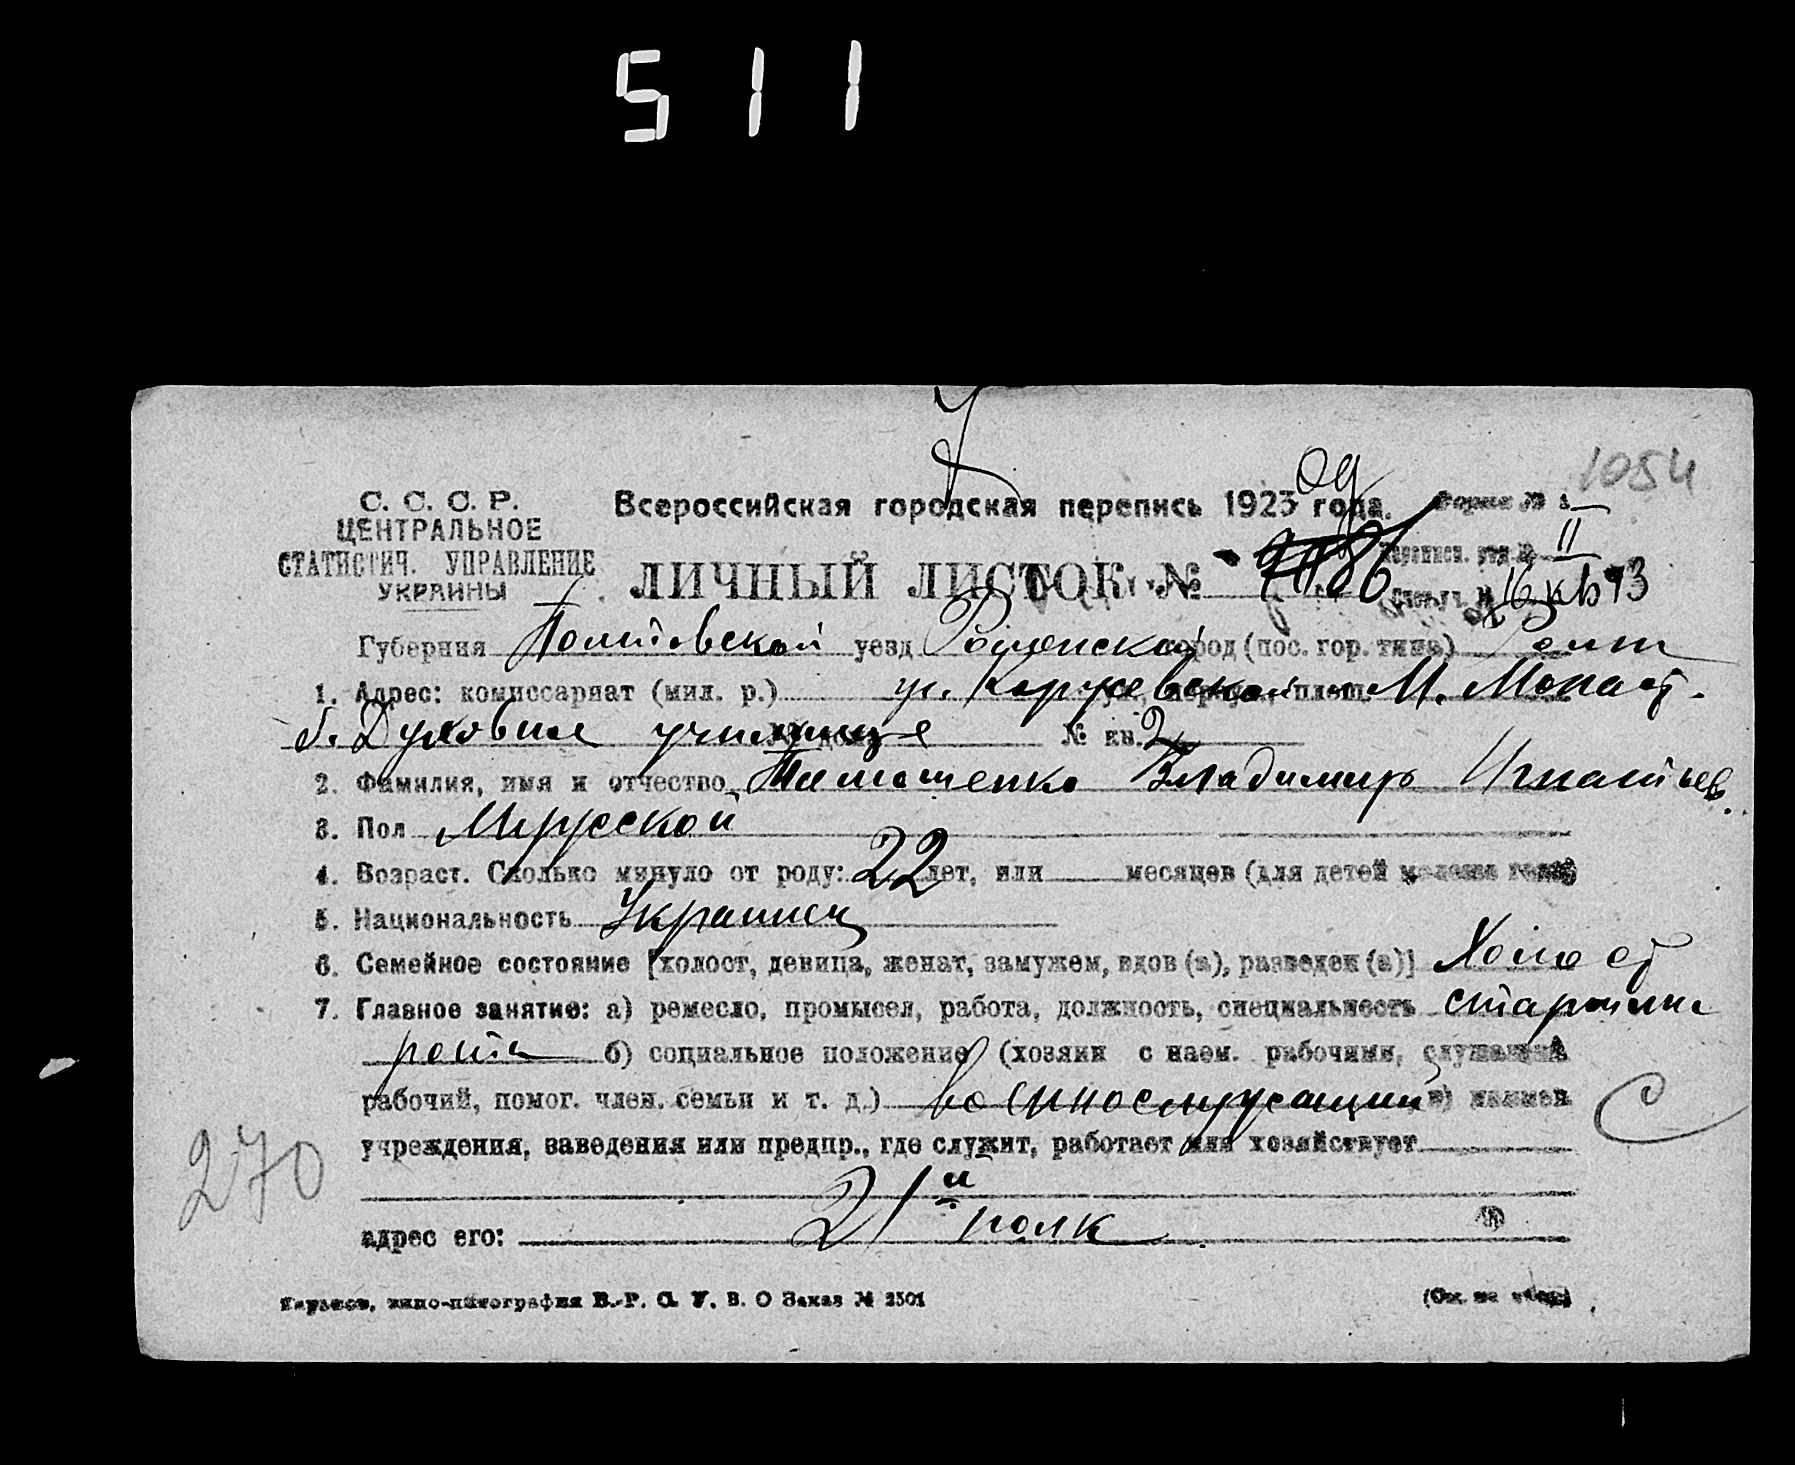 511
1054
С. С. С. Р.
ЦЕНТРАЛЬНОЕ
СТАТИСТИЧ. УПРАВЛЕНИЕ
УКРАИНЫ
Всероссийская городская перепись 1923 года.
ЛИЧНЫЙ ЛИСТОК №
II
Губерния Полтовской уезд город (пос. гор. типа)
1. Адрес: комиссариат (мил. р.) ул. М. Монаст.
б. Духовные училище № кв. 2
2. Фамилия, имя и отчество Тимошенко Владимир Игнатьев.
3. Пол Мужской
4. Возраст. Сколько минуло от роду: 22 лет, или месяцев (для детей
5. Национальность Украинец
6. Семейное состояние [холост, девица, женат, замужем, вдов (а), разведен (а)] Холост
7. Главное занятие: а) ремесло, промысел, работа, должность, специальность старшина
роты б) социальное положение (хозяин с наем. рабочими, служащий
рабочий, помог. член. семьи и т. д.) военнослужащий в) наимен
учреждения, заведения или предпр., где служит, работает или хозяйствует
270
21й полк
адрес его:
В. О Заказ № 2501